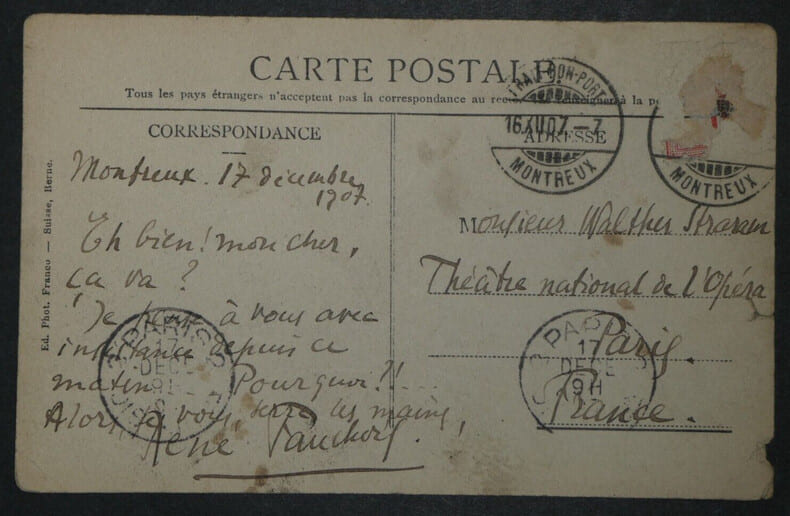 CARTE POSTALE
Tous les pays étrangers n'acceptent pas la correspondance au à la
CORRESPONDANCE
ADRESSE
Montreux. 17 décembre
1907.
Eh bien! mon cher,
ça va ?
Je pense à vous avec
insistance depuis ce
matin Pourquoi?!
Alors je vous serre les mains,
René Fauchois.
Monsieur Walther Straram
Théâtre national de l'Opéra
Paris.
France.
Ed. Phot. Franco — Suisse, Berne.
16.XII.07.–7
MONTREUX
MONTREUX
PARIS
17
DECE
PARIS
17
DECE
9H